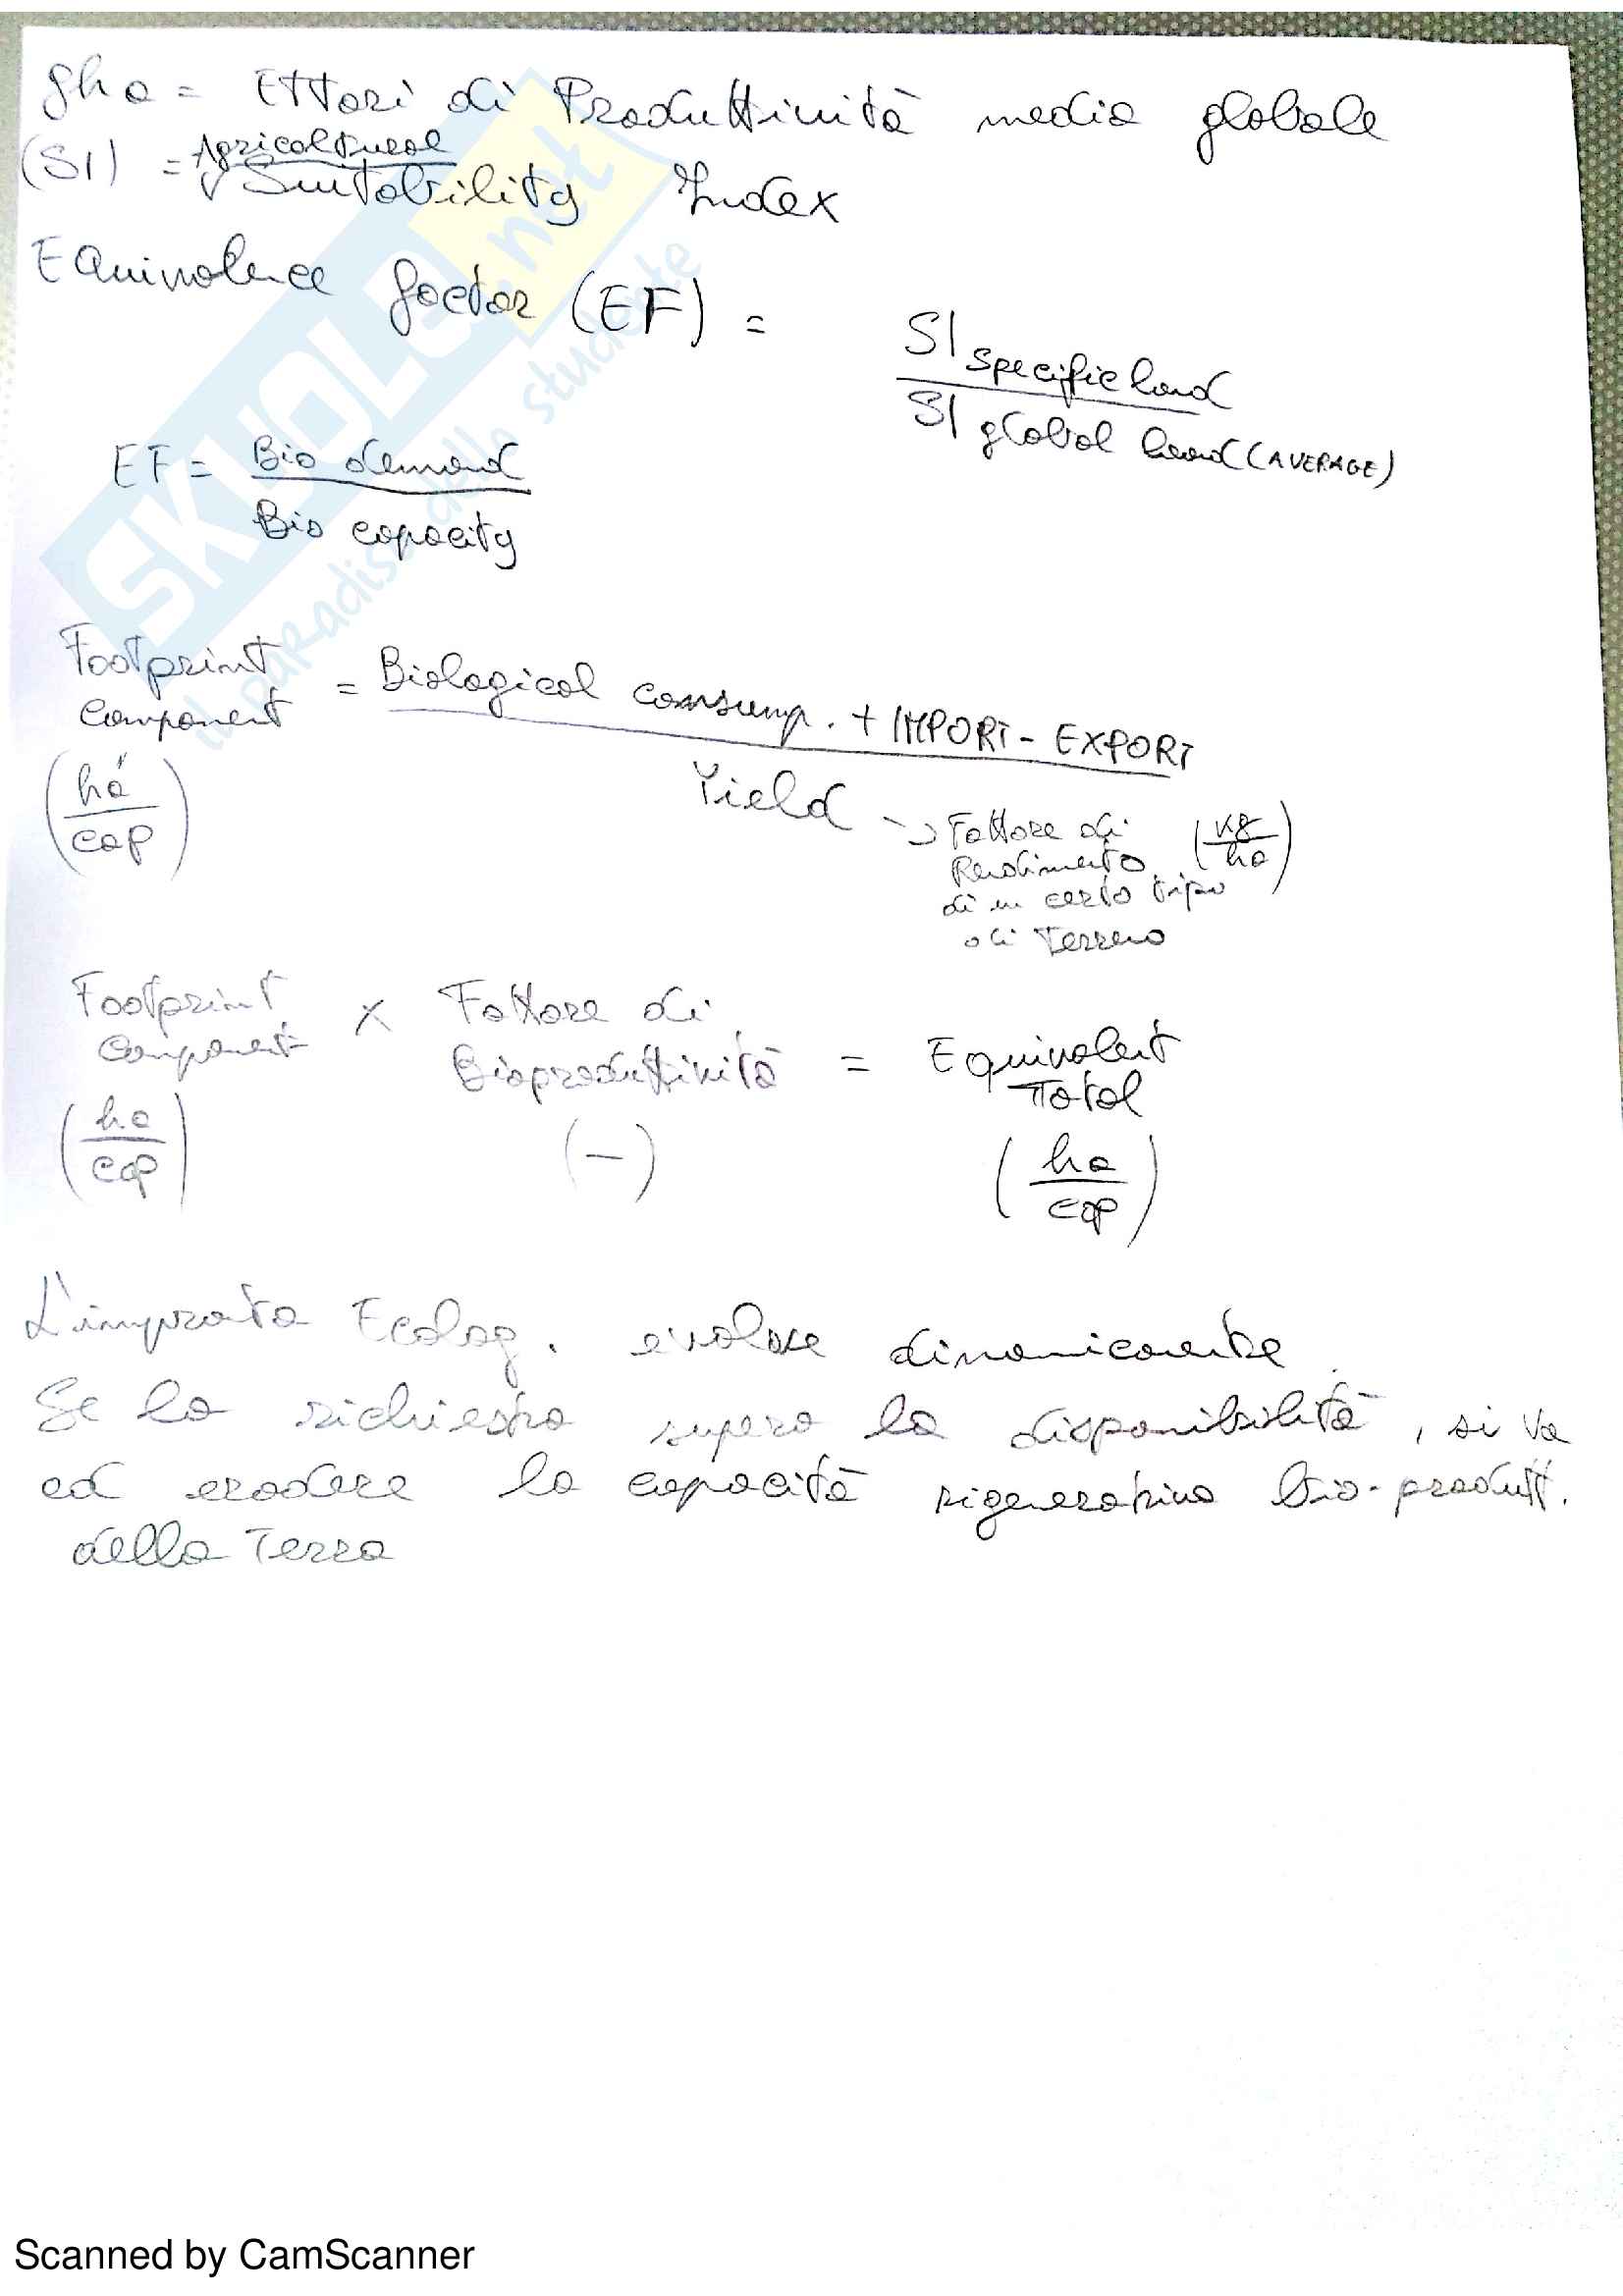 gha = Ettari di Produttività media globale
(SI) = Agricoltural Suitability Index
Equivalence factor (EF) = SI specific land / SI global land (AVERAGE)
EF = Bio demand / Bio capacity
Footprint component (ha/cap) = Biological consump. + IMPORT - EXPORT / Yield
→ Fattore di Rendimento (kg/ha)
di un certo tipo
di Terreno
Footprint component × Fattore di Bioproduttività = Equivalent Total
(ha/cap) (-) (ha/cap)
L'impronta Ecolog. evolve dinamicamente.
Se la richiesta supera la disponibilità, si va
ad erodere la capacità rigenerativa bio-produtt.
della Terra
SKUOLA.net
il paradiso dello studente
Scanned by CamScanner